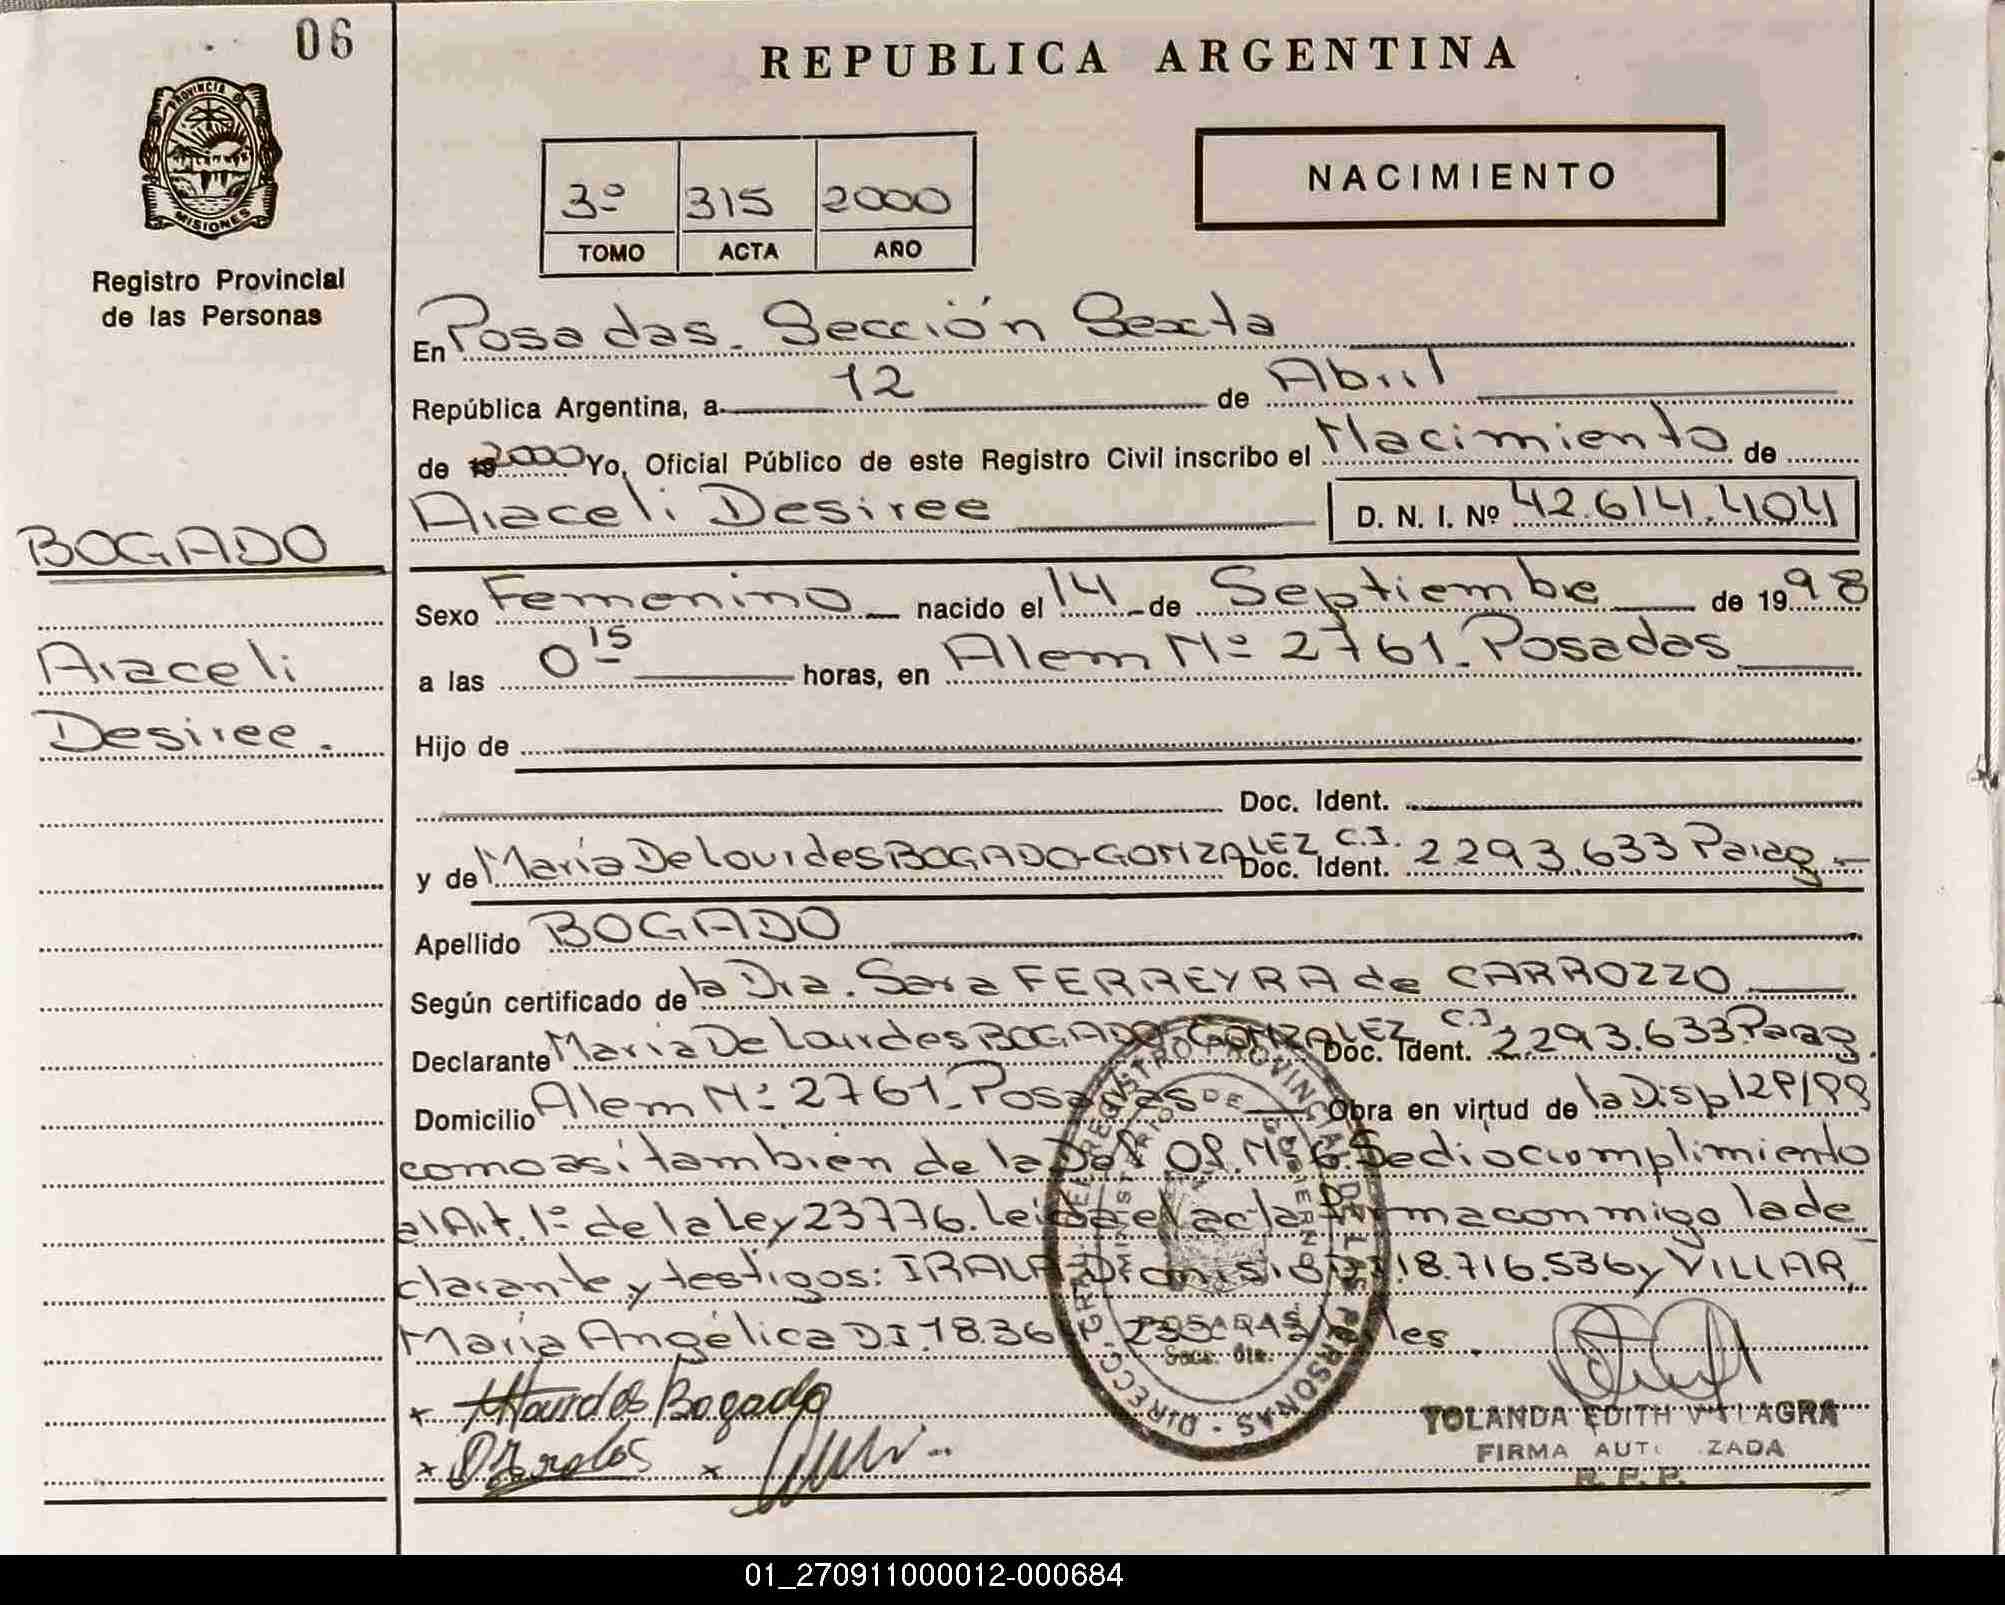 06
REPUBLICA ARGENTINA
PROVINCIA DE
MISIONES
Registro Provincial
de las Personas
NACIMIENTO
3º 315 2000
TOMO ACTA AÑO
En Posadas. Sección Sexta
República Argentina, a 12 de Abril
de 2000 Yo, Oficial Público de este Registro Civil inscribo el Nacimiento de
Araceli Desiree D. N. I. Nº 42.614.404
BOGADO
Araceli
Desiree.
Sexo Femenino nacido el 14 de Septiembre de 1998
a las 0 15 horas, en Alem Nº 2761. Posadas
Hijo de
Doc. Ident.
y de María De Lourdes BOGADO-GONZALEZ Doc. Ident. C.I. 2.293.633 Parag
Apellido BOGADO
Según certificado de la Dra. Sara FERREYRA de CARROZZO
Declarante María De Lourdes BOGADO-GONZALEZ Doc. Ident. C.I. 2.293.633 Parag.
Domicilio Alem Nº 2761. Posadas Obra en virtud de la Disp 129/99
como asi tambien de la Of. Nº 6. Se dio cumplimiento
al Art. 1º de la Ley 23776. Leida el acta firma conmigo la de
clarante y testigos: IRALA Dionisi DI 18.716.536 y VILLAR
María Angélica D.I. 18.36
Lourdes Bogado
YOLANDA EDITH VILLAGRA
FIRMA AUTORIZADA
R. P. P.
01_270911000012-000684